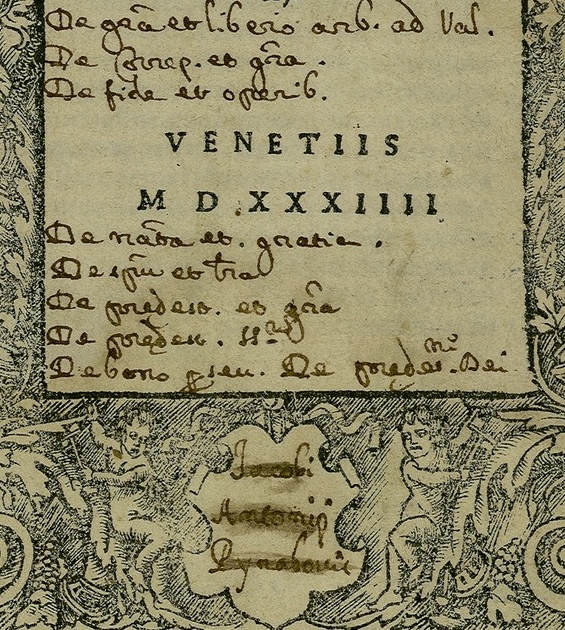 De gr̃a et libero arb. ad Val.
De Correp. et gr̃a.
De fide et operib.
VENETIIS
M D XXXIIII
De nat̃a et. gratia.
De sp̃u et l̃ra
De predest. et gr̃a
De predest. SS.
De bono ꝑseu. De predes. Dei
Jacobi
Antonij